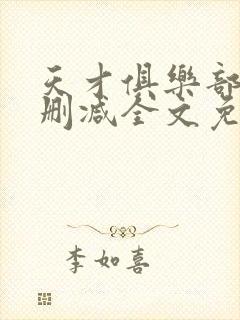 天才俱樂部
删減全文免
李如喜